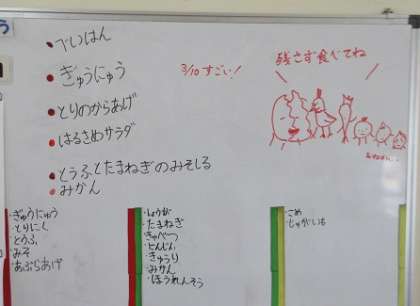 ごはん
ぎゅうにゅう
とりのからあげ
はるさめサラダ
とうふとたまねぎのみそしる
みかん
3/10 すごい!
残さず食べてね
ぎゅうにゅう
とりにく
とうふ
みそ
あぶらあげ
しょうが
たまねぎ
きゃべつ
にんじん
きゅうり
みかん
ほうれんそう
こめ
じゃがいも